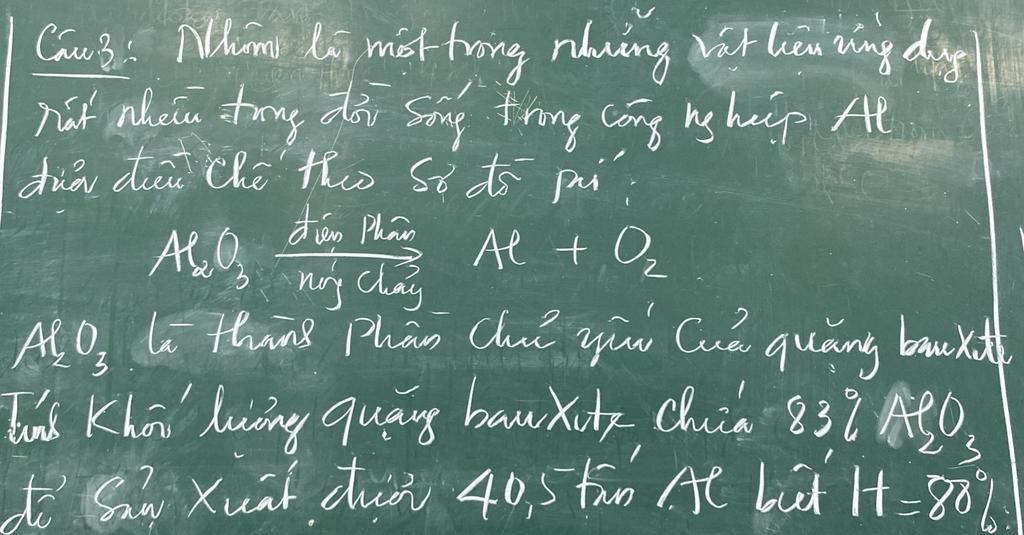 Câu 3: Nhôm là một trong những vật liệu ứng dụng
rất nhiều trong đời sống trong công nghiệp Al
được điều chế theo sơ đồ pứ:
Al2O3 điện phân nóng chảy → Al + O2
Al2O3 là thành phần chủ yếu của quặng bauxite
Tính khối lượng quặng bauxite chứa 83% Al2O3
để sản xuất được 40,5 tấn Al biết H = %